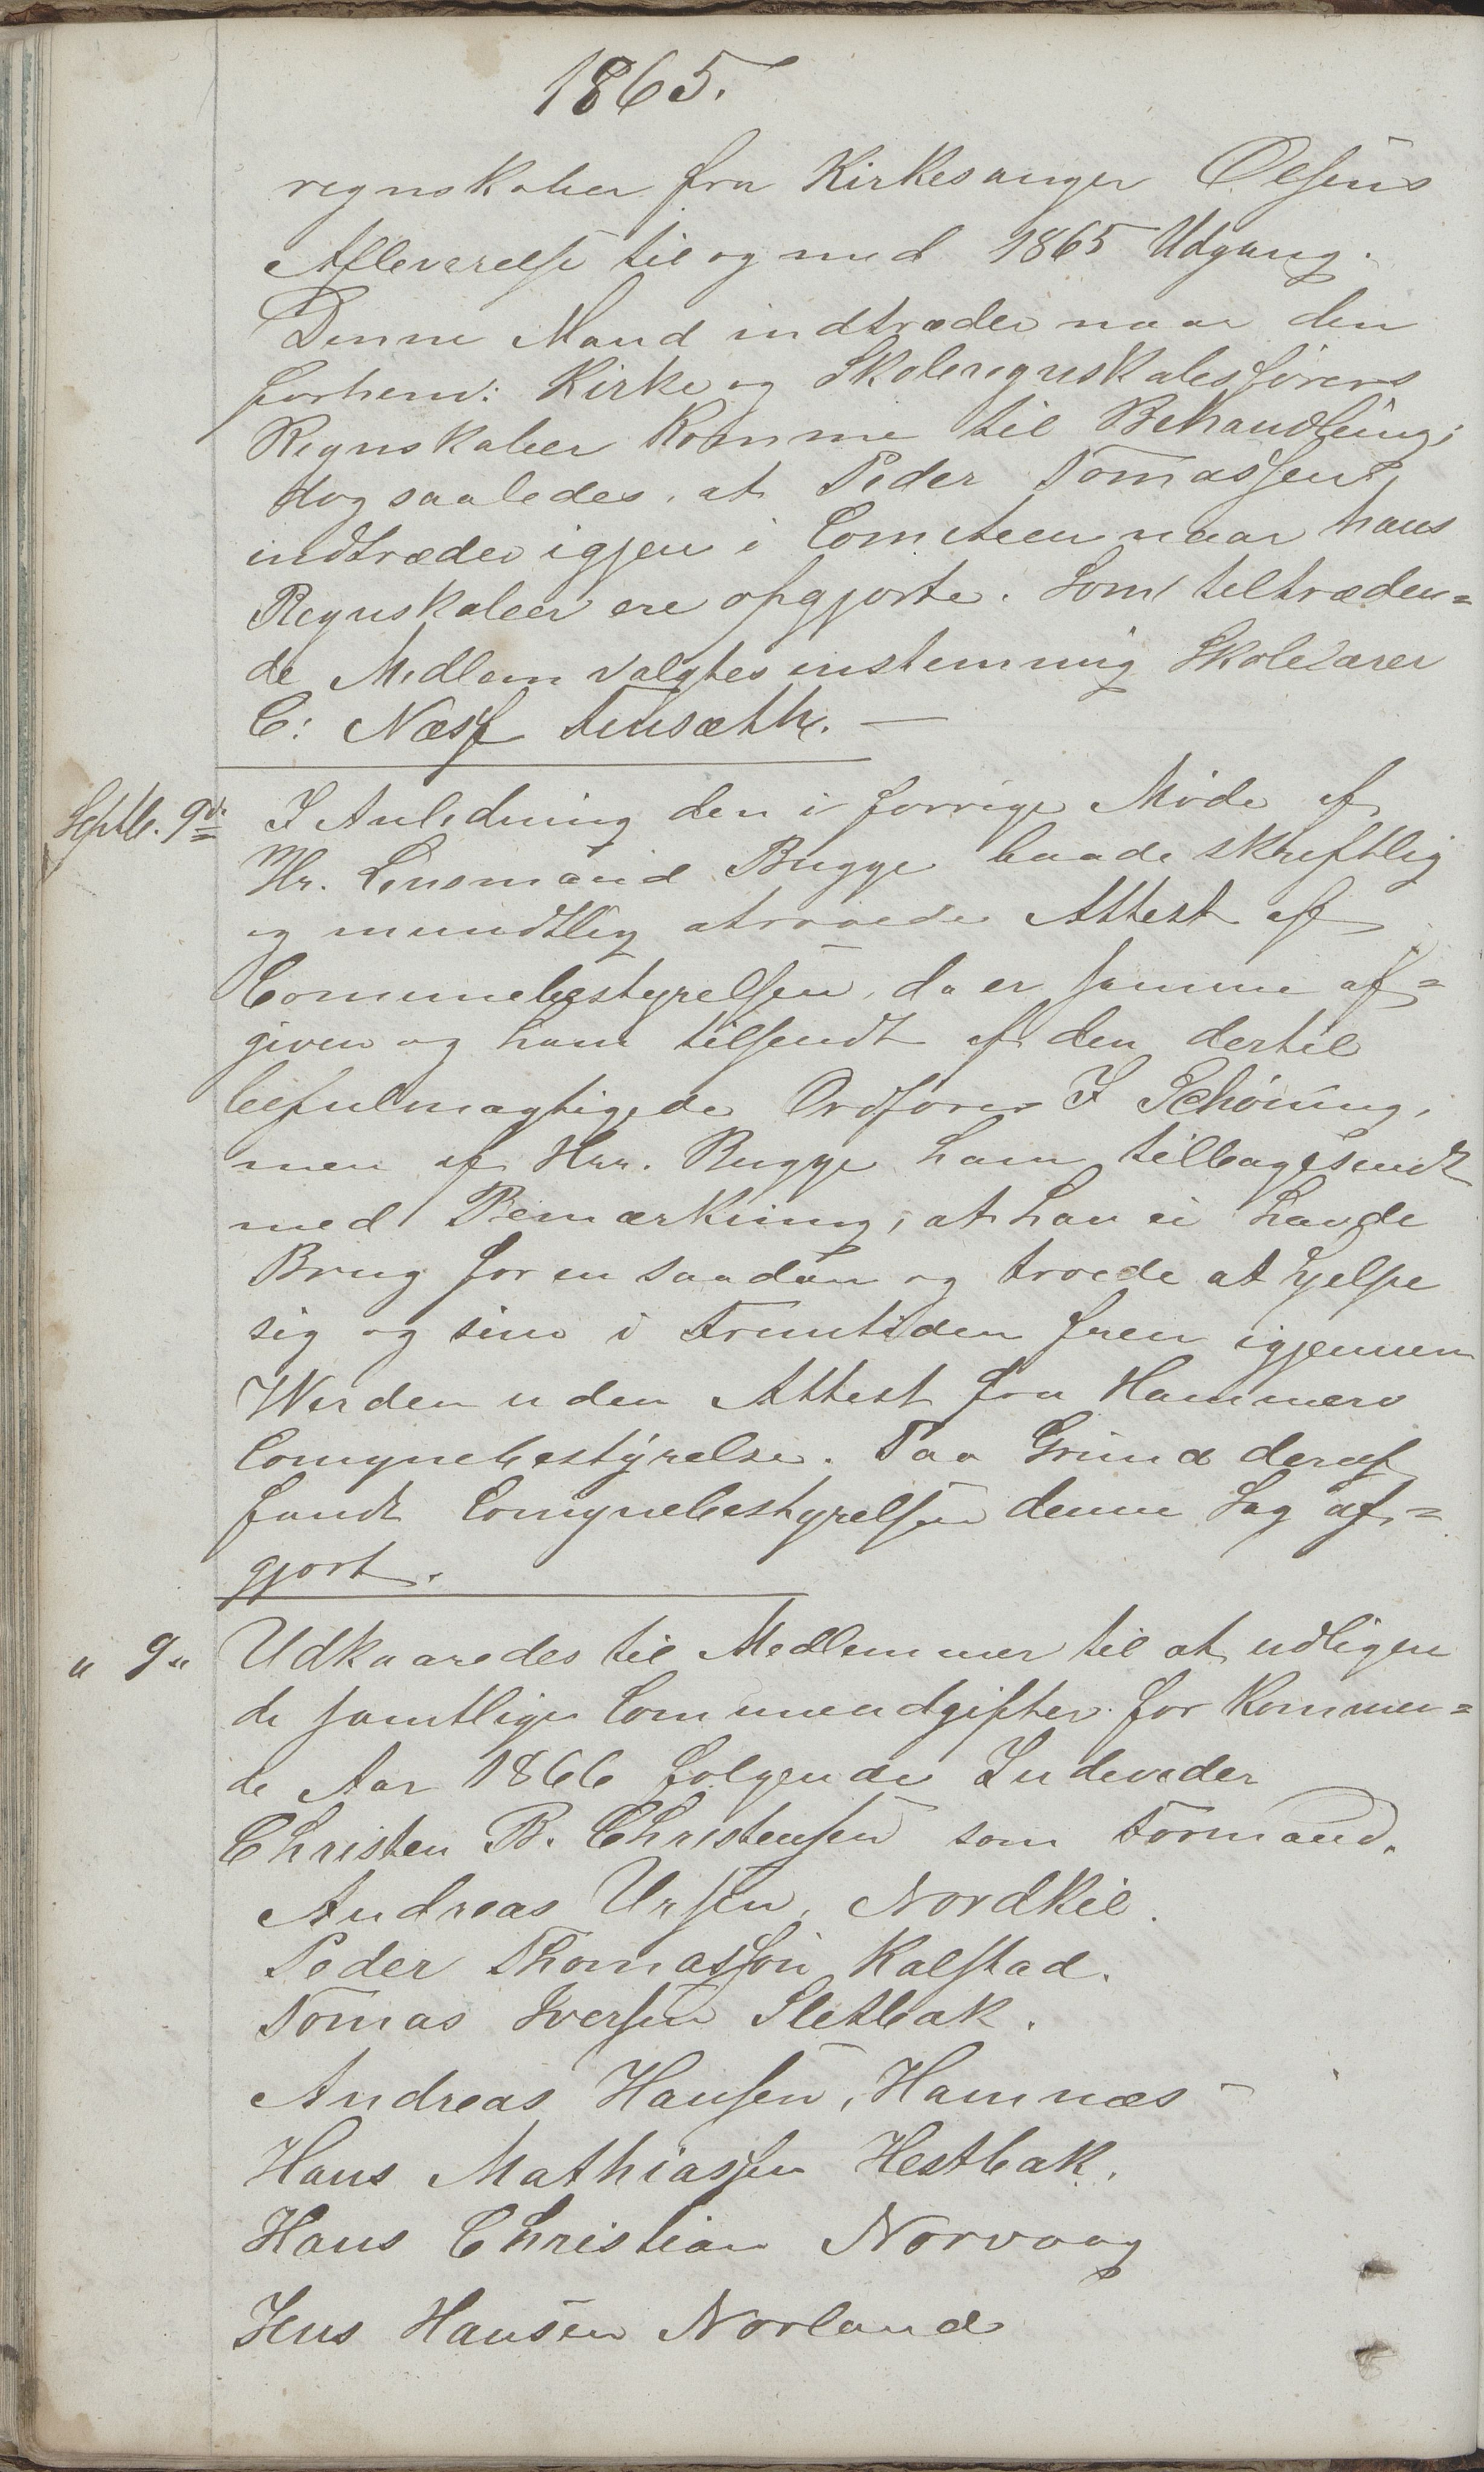 1865.
regnskaber fra Kirkesanger Olsens
Afleverelse til og med 1865 Udgang.
Denne Mand indtræder naar den
forhenv: Kirke og Skoleregnskabsførers
Regnskaber komme til Behandling;
dog saaledes, at Peder Tomassen,
indtræder igjen i Comiteen naar hans
Regnskaber ere opgjorte. Som tiltræden=
de Medlem valgtes enstemmig Skolelærer
C: Næss Finsæth. —
Septb. 9d. I Anledning den i forrige Møde af
Hr. Lensmand Bugge baade skriftlig
og mundtlig attraaede Attest af
Communebestyrelsen, da er samme af=
given og ham tilsendt af den dertil
befulmægtigede Ordfører I Schøning,
men af Hrr. Bugge ham tilbagesendt
med Bemærkning, at han ei havde
Brug for en saadan og troede at hjelpe
sig og sine i Fremtiden frem igjennem
Werden uden Attest fra Hammerø
Comunebestyrelse. Paa Grund deraf
fandt Comunebestyrelsen denne Sag af=
gjort.
" 9" Udkaaredes til Medlemmer til at udligne
de samtlige Communeudgifter for kommen=
de Aar 1866 følgende Indeveder
Christen B. Christensen som Formand.
Andreas Ursin, Nordkil.
Peder Thomasson Kalstad.
Tomas Iversen Sletbak.
Andreas Hansen, Hamnæs –
Hans Mathiassen Hestbak.
Hans Christian Norvaag
Jens Hansen Norland